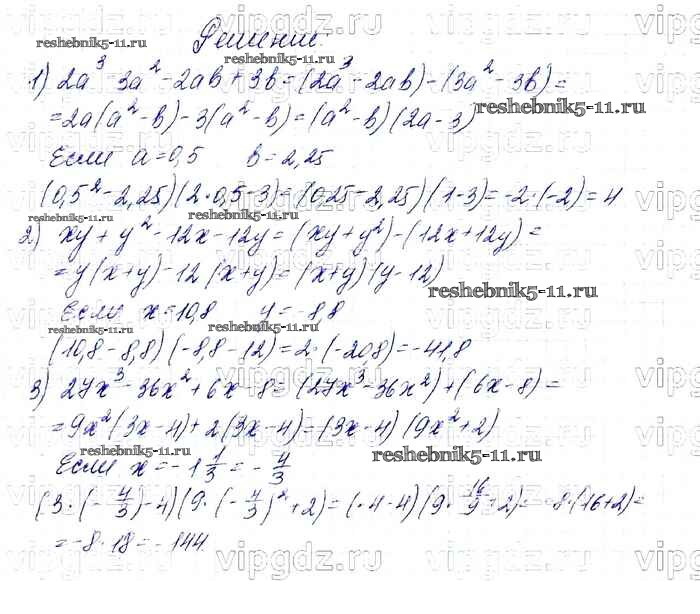 Решение.
1) 2a³ - 3a² - 2ab + 3b = (2a³ - 2ab) - (3a² - 3b) =
= 2a(a² - b) - 3(a² - b) = (a² - b)(2a - 3)
Если a = 0,5 b = 2,25
(0,5² - 2,25)(2·0,5 - 3) = (0,25 - 2,25)(1 - 3) = -2·(-2) = 4
2) xy + y² - 12x - 12y = (xy + y²) - (12x + 12y) =
= y(x + y) - 12(x + y) = (x + y)(y - 12)
Если x = 10,8 y = -8,8
(10,8 - 8,8)(-8,8 - 12) = 2·(-20,8) = -41,8
3) 27x³ - 36x² + 6x - 8 = (27x³ - 36x²) + (6x - 8) =
= 9x²(3x - 4) + 2(3x - 4) = (3x - 4)(9x² + 2)
Если x = -1 1/3 = -4/3
(3·(-4/3) - 4)(9·(-4/3)² + 2) = (-4 - 4)(9·16/9 + 2) = -8·(16 + 2) =
= -8·18 = -144
reshebnik5-11.ru
reshebnik5-11.ru
reshebnik5-11.ru
reshebnik5-11.ru
reshebnik5-11.ru
reshebnik5-11.ru
reshebnik5-11.ru
reshebnik5-11.ru
reshebnik5-11.ru
reshebnik5-11.ru
vipgdz.ru